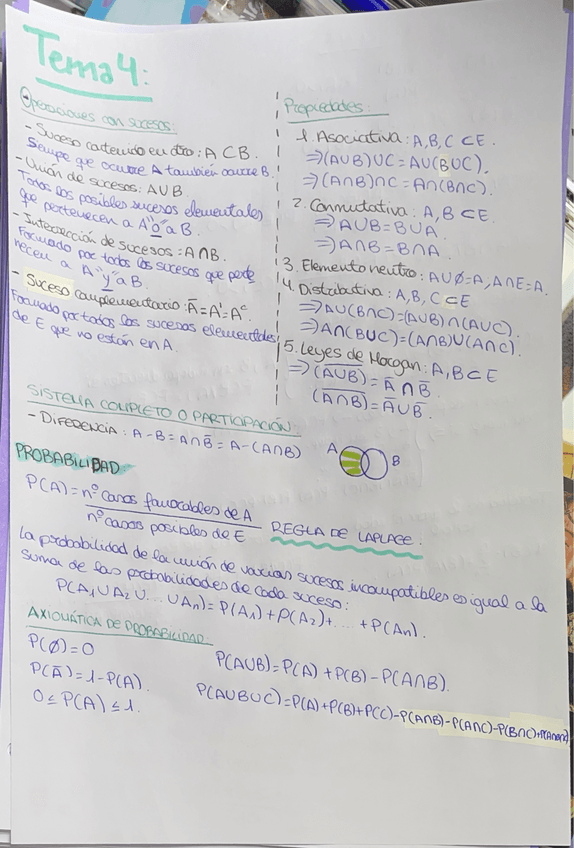 Tema 4:
Operaciones con sucesos:
- Suceso contenido en otro: A ⊂ B.
Siempre que ocurre A también ocurre B.
- Unión de sucesos: A∪B.
Todos los posibles sucesos elementales
que pertenecen a A "o" a B.
- Intersección de sucesos: A∩B.
Formado por todos los sucesos que perte
necen a A "y" a B.
- Suceso complementario: Ā = A' = Aᶜ
Formado por todos los sucesos elementales
de E que no están en A.
Propiedades:
1. Asociativa: A, B, C ⊂ E.
⇒(A∪B)∪C = A∪(B∪C).
⇒(A∩B)∩C = A∩(B∩C).
2. Conmutativa: A, B ⊂ E.
⇒ A∪B = B∪A
⇒ A∩B = B∩A
3. Elemento neutro: A∪Ø = A, A∩E = A.
4. Distributiva: A, B, C ⊂ E
⇒ A∪(B∩C) = (A∪B)∩(A∪C).
⇒ A∩(B∪C) = (A∩B)∪(A∩C).
5. Leyes de Morgan: A, B ⊂ E
⇒ (A̅∪̅B̅) = A̅ ∩ B̅
(A̅∩̅B̅) = A̅∪B̅.
SISTEMA COMPLETO O PARTICIPACIÓN:
- DIFERENCIA: A - B = A∩B̅ = A - (A∩B)
A B
PROBABILIDAD
P(A) = nº casos favorables de A
nº casos posibles de E
REGLA DE LAPLACE:
La probabilidad de la unión de varios sucesos incompatibles es igual a la
suma de las probabilidades de cada suceso:
P(A₁∪A₂∪...∪Aₙ) = P(A₁) + P(A₂) + ... + P(Aₙ).
AXIOMÁTICA DE PROBABILIDAD
P(Ø) = 0
P(Ā) = 1 - P(A).
0 ≤ P(A) ≤ 1.
P(A∪B) = P(A) + P(B) - P(A∩B).
P(A∪B∪C) = P(A) + P(B) + P(C) - P(A∩B) - P(A∩C) - P(B∩C) + P(A∩B∩C)